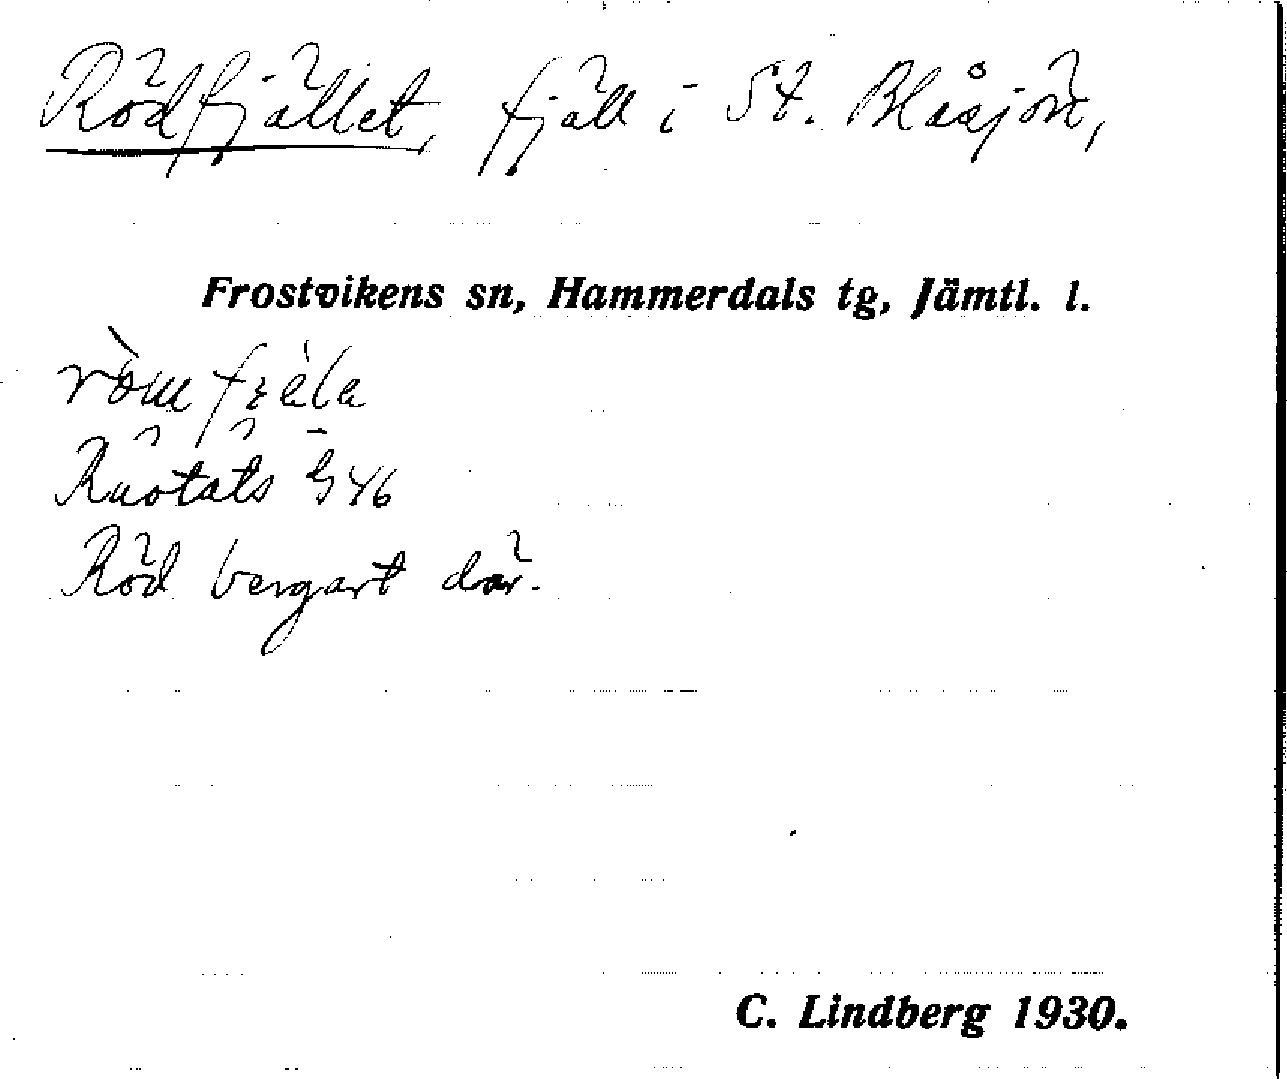 Rödfjället, fjäll i St. Blåsjön,
Frostvikens sn, Hammerdals tg, Jämtl. l.
Röd bergart där.
C. Lindberg 1930.